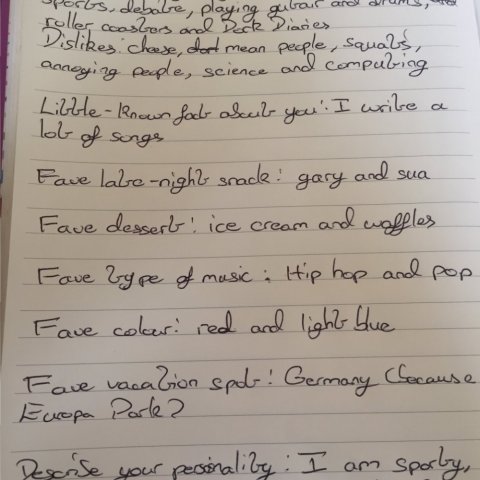 sports, debate, playing guitar and drums,
roller coasters and Dork Diaries
Dislikes: cheese, mean people, squats,
annoying people, science and computing
Little-known fact about you: I write a
lot of songs
Fave late-night snack: gary and sua
Fave dessert: ice cream and waffles
Fave type of music: Hip hop and pop
Fave colour: red and light blue
Fave vacation spot: Germany (because
Europa Park?
Describe your personality: I am sporty,